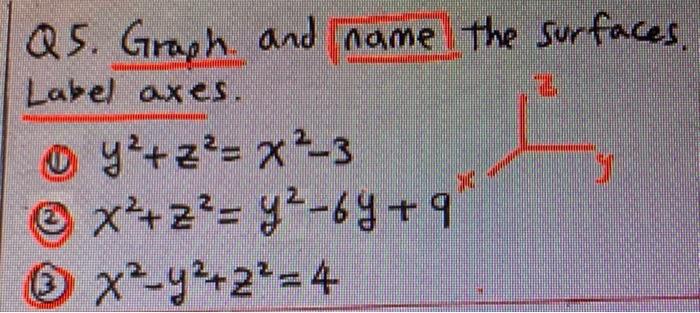 Q5. Graph. and name the surfaces.
Label axes.
① y²+z²= x²-3
② x²+z²= y²-6y+9
③ x²-y²+z²=4
z
y
x